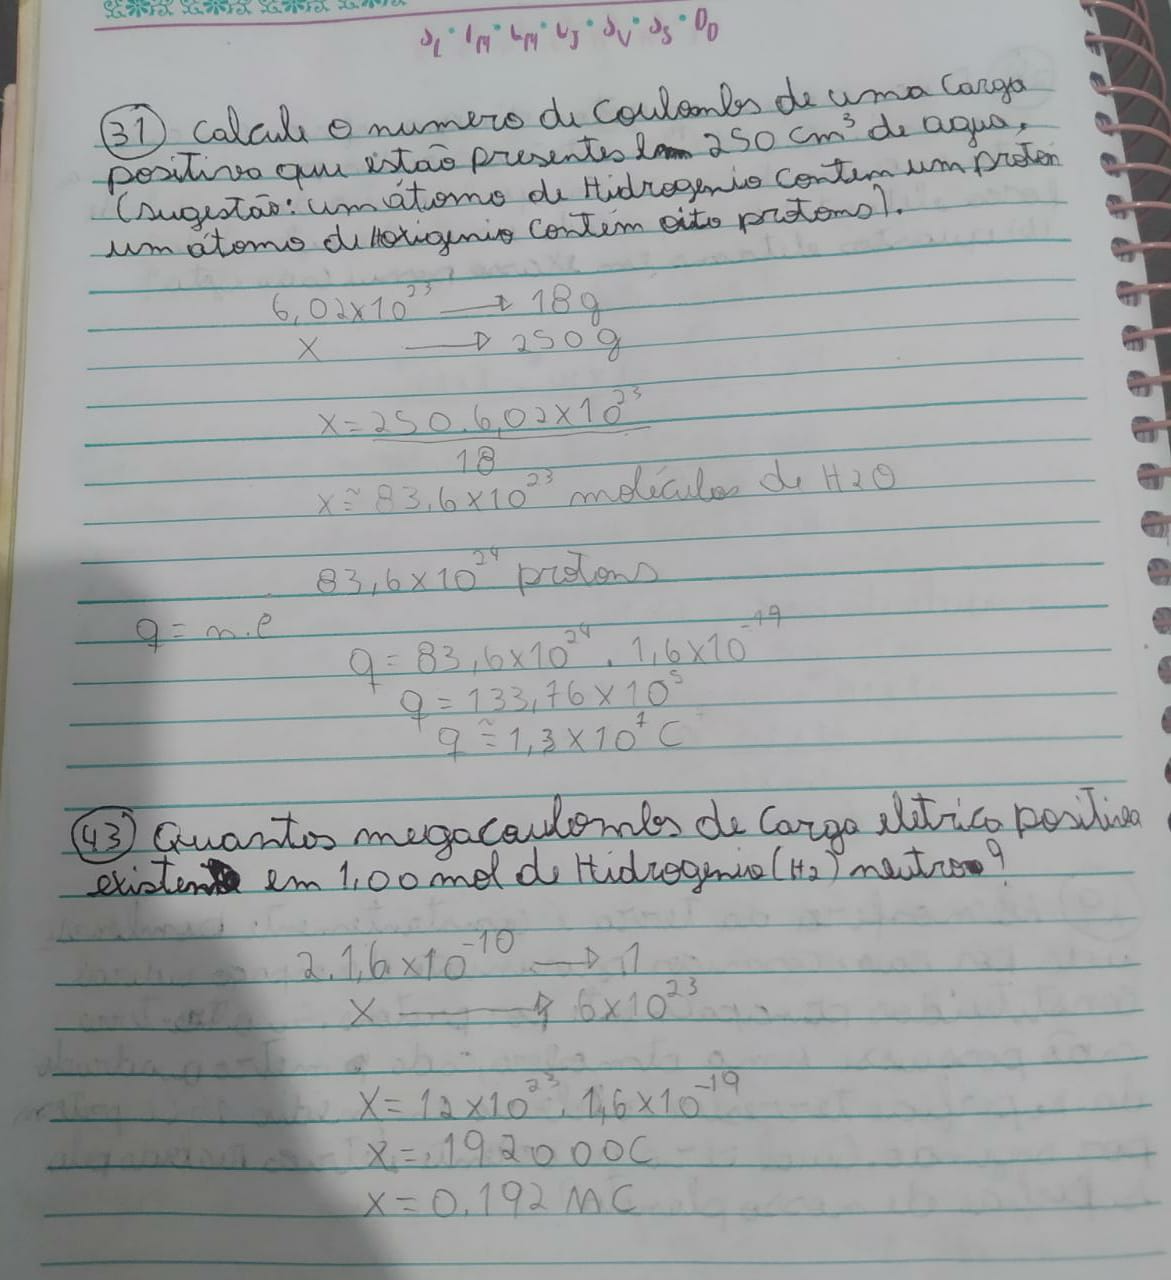 31 Calcule o numero de Coulombs de uma Carga
positiva que estão presentes em 250 cm³ de agua.
(sugestão: um átomo de Hidrogenio contem um proton
um átomo de Hoxigenio contém oito protons).
6,02x10²³ → 18g
x → 250g
x = 250.6,02x10²³
18
x ≅ 83,6x10²³ moléculas de H2O
83,6x10²⁴ protons
q = n.e
q = 83,6x10²⁴ . 1,6x10⁻¹⁹
q = 133,76 x 10⁵
q ≅ 1,3x10⁷ C
43 Quantos megacoulombs de Carga eletrica positiva
existem em 1,00 mol de Hidrogenio (H₂) neutro?
2.1,6x10⁻¹⁰ → 1
x → 6x10²³
x = 12x10²³ . 1,6x10⁻¹⁹
x = 192000C
x = 0.192 MC